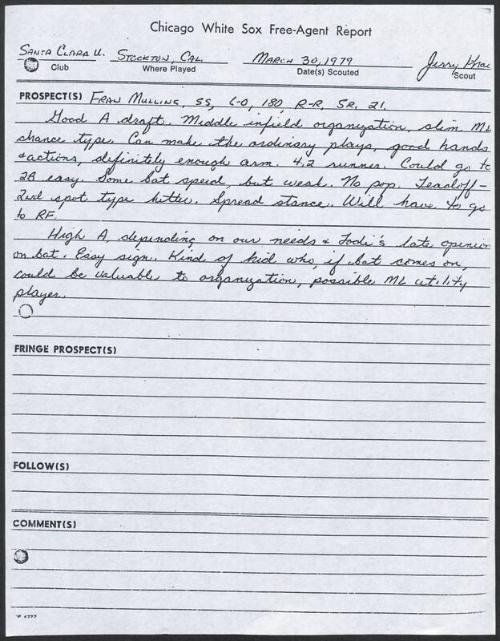 Chicago White Sox Free-Agent Report
Santa Clara U. Stockton, Cal. March 30, 1979 Jerry
Club Where Played Date(s) Scouted Scout
PROSPECT(S) Fran Mullins, SS, 6-0, 180, R-R, SR, 21.
Good A draft. Middle infield organization, slim ML
chance type. Can make the ordinary plays, good hands
& actions, definitely enough arm. 4.2 runner. Could go to
2B easy. Some bat speed, but weak. No pop. Leadoff-
2nd spot type hitter. Spread stance. Will have to go
to RF.
High A, depending on our needs & late opinion
on bat. Easy sign. Kind of kid who, if bat comes on,
could be valuable to organization, possible ML utility
player.
FRINGE PROSPECT(S)
FOLLOW(S)
COMMENT(S)